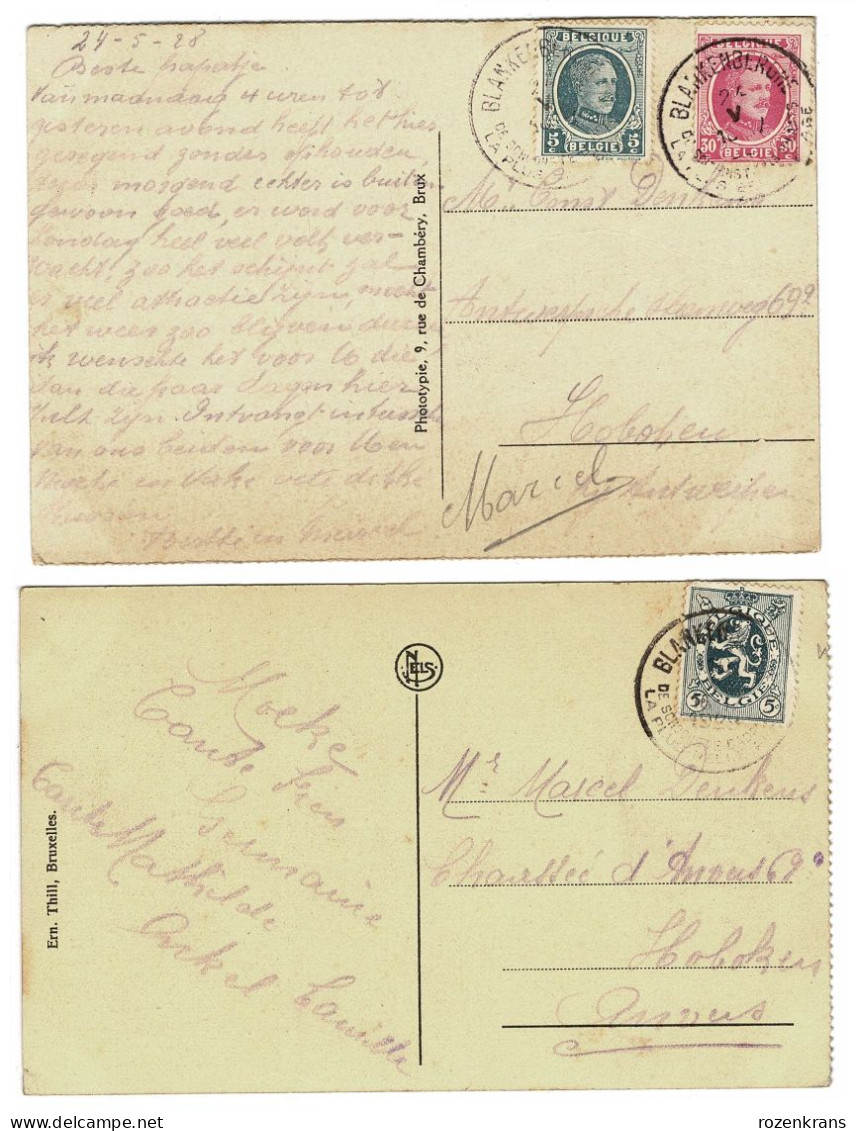 24-5-28
Beste papatje
Van maandag 4 uren tot
gisteren avond heeft het hier
geregend zonder ophouden,
morgend echter is buiten
gewoon goed, er word voor
Zondag heel veel volk ver-
wacht, zoo het schijnt zal
er veel attractie zijn, mocht
het weer zoo blijven duren
ik wenschte het voor U die
dan die paar dagen hier
zult zijn. Ontvangt
van ons beiden voor U en
Moeke en Vake vele dikke
Marcel
Phototypie, 9, rue de Chambéry, Brux
BELGIQUE
5 5
BELGIE
BELGIQUE
30 30
BELGIE
BLANKENBERGHE
LA PLUS
BLANKENBERGHE
LA PLUS
Mr Ernst Denkens
Antwerpsche steenweg 69²
Hoboken
bij Antwerpen
Marcel
Ern. Thill, Bruxelles.
NELS
Moeke
Tante Fien
Germaine
Tante Mathilde
Onkel Camille
BELGIQUE
BELGIE
5c 5c
BLANKEN
DE SCH
LA PL
Mr Marcel Denkens
Chaussée d'Anvers 69²
Hoboken
Anvers
rozenkrans